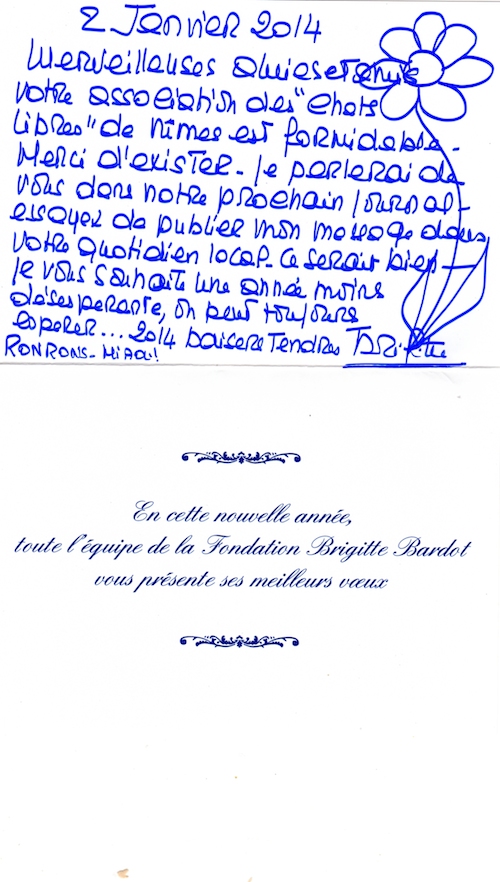 2 Janvier 2014
Merveilleuses amies et amis
votre association des "chats
libres" de Nîmes est formidable -
Merci d'exister - je parlerai de
vous dans notre prochain journal -
essayez de publier mon message dans
votre quotidien local - ce serait bien -
je vous souhaite une année moins
désesperante, on peut toujours
esperer... 2014 baisers Tendres Brigitte
RONRONS - MiAOU!
En cette nouvelle année,
toute l'équipe de la Fondation Brigitte Bardot
vous présente ses meilleurs vœux